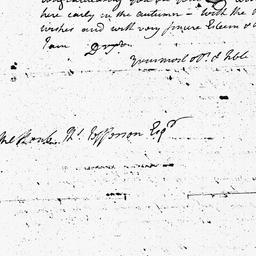 here early in the autumn – with the
wishes and with very sincere Esteem &
I am Dr Sir
Your most ob.t & hble
Th.s Jefferson Esq.r